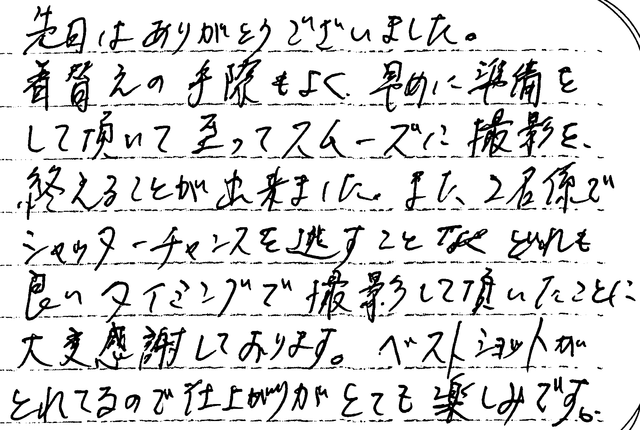 先日はありがとうございました。
着替えの手際もよく、早めに準備を
して頂いて至ってスムーズに撮影を、
終えることが出来ました。また、2名係で
シャッターチャンスを逃すことなくどれも
良いタイミングで撮影して頂いたことに
大変感謝しております。ベストショットが
とれてるので仕上がりがとても楽しみです。